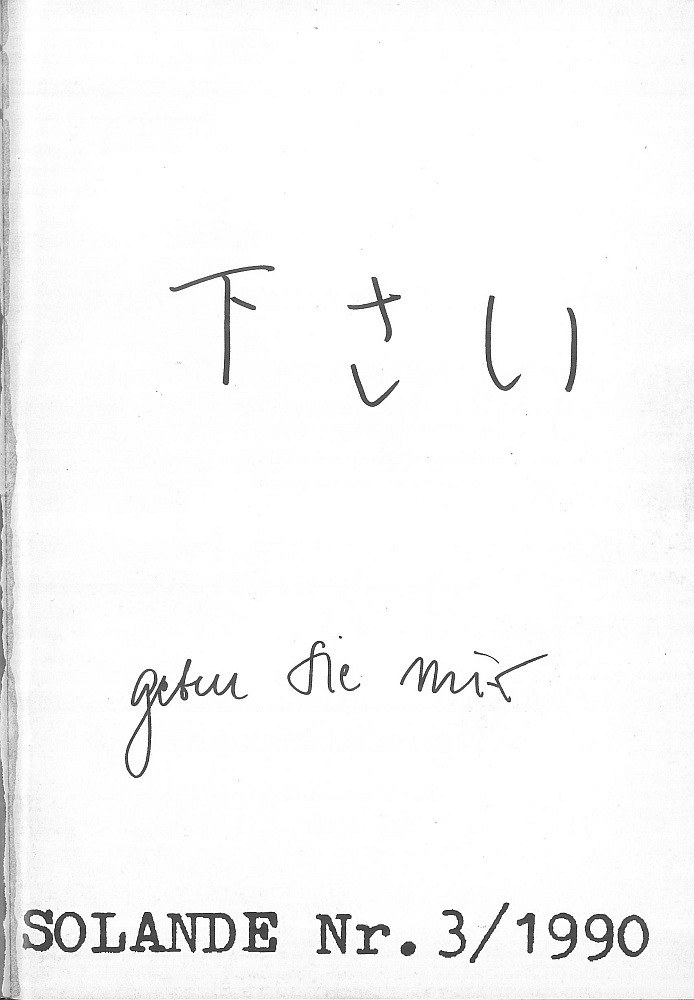 下さい
geben Sie mir
SOLANDE Nr. 3/1990